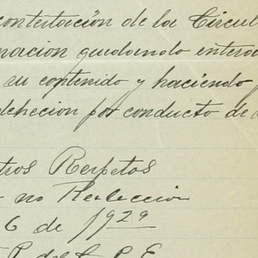 contestación de la Circul
nacion quedando entera
su contenido y haciendo
dehecion por conducto de
tros Respetos
no Reeleccion
6 de 1929